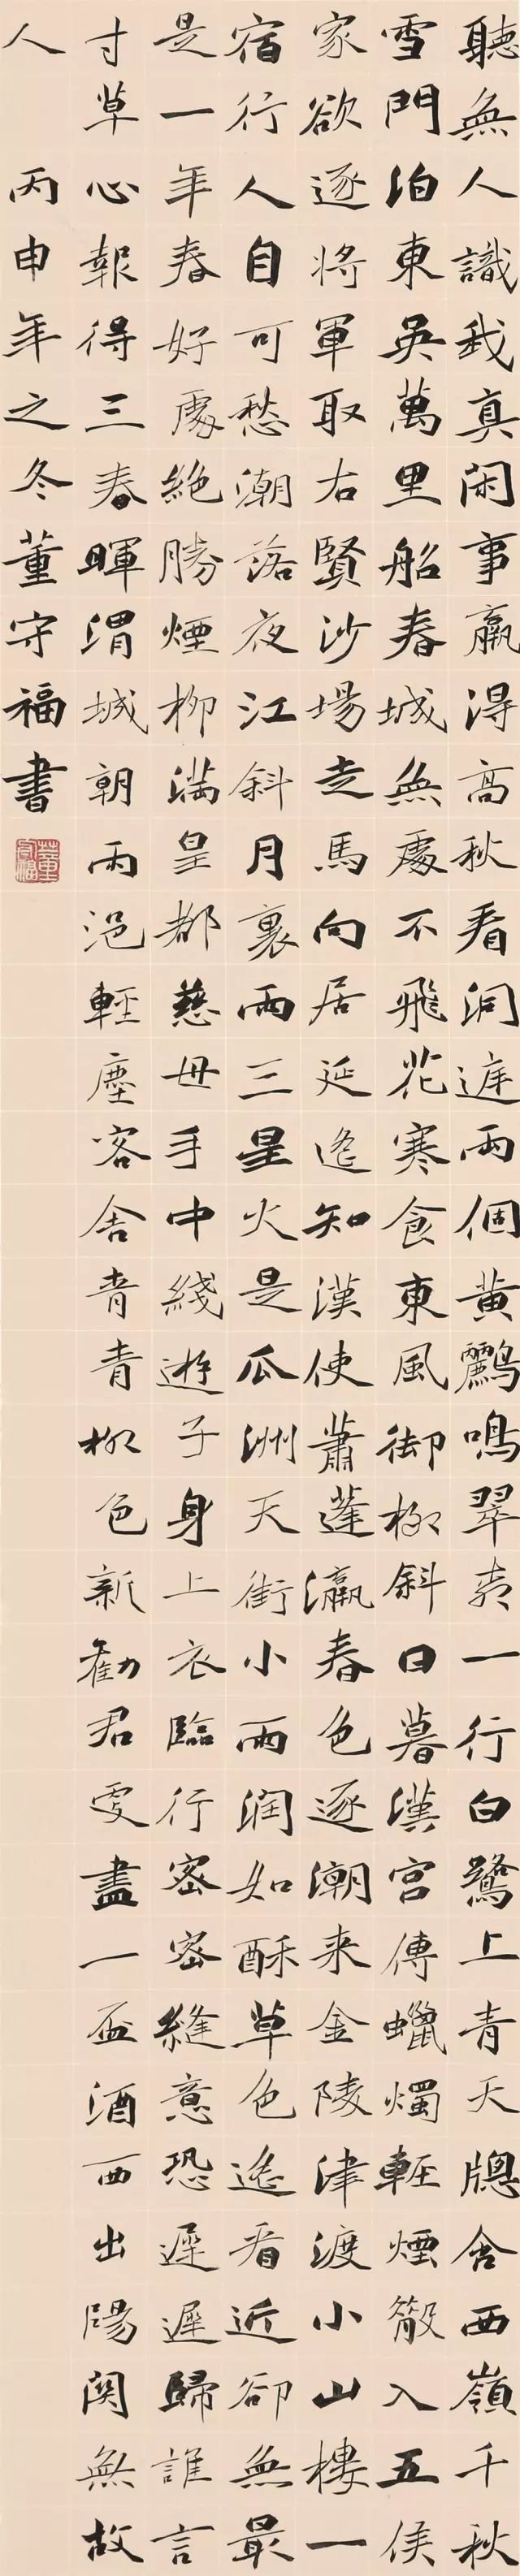 聽無人識我真閑事贏得高秋看洞庭兩個黃鸝鳴翠柳一行白鷺上青天牕含西嶺千秋
雪門泊東吳萬里船春城無處不飛花寒食東風御柳斜日暮漢宮傳蠟燭輕煙散入五侯
家欲逐將軍取右賢沙場走馬向居延遙知漢使蕭蓬瀛春色逐潮来金陵津渡小山樓一
宿行人自可愁潮落夜江斜月裏兩三星火是瓜洲天街小雨潤如酥草色遙看近卻無最
是一年春好處絕勝煙柳滿皇都慈母手中綫遊子身上衣臨行密密縫意恐遲遲歸誰言
寸草心報得三春暉渭城朝雨浥輕塵客舍青青柳色新勸君更盡一盃酒西出陽関無故
人 丙申年之冬董守福書
董守福